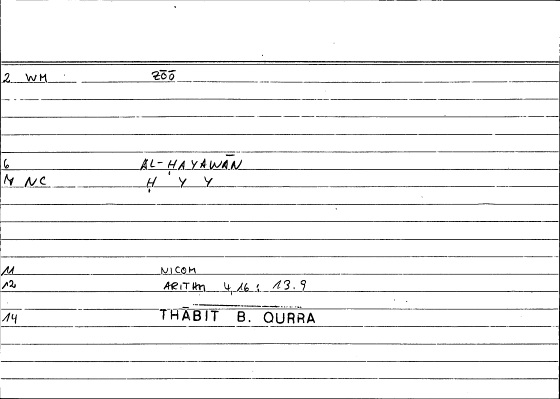 2 WM ZŌŌ
6 AL-ḤAYAWĀN
NC Ḥ Y Y
11 NICOM
12 ARITHM 4,16 : 13.9
14 THĀBIT B. QURRA